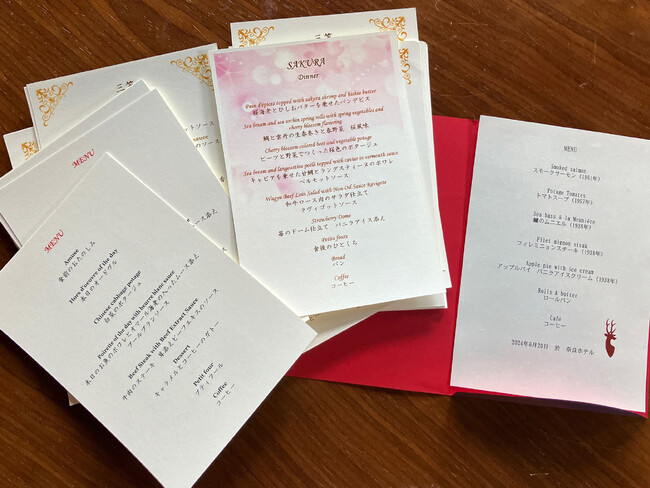 三笠
三笠
MENU
MENU
Amuse
食前のおたのしみ
Hors d'oeuvre of the day
本日のオードヴル
Chinese cabbage potage
白菜のポタージュ
Poirette of the day with beurre blanc sauce
本日のお魚のポワレとオマール海老の入ったムース添え
ブールブランソース
Beef Steak with Beef Extract Sauce
牛肉のステーキ 茸添えビーフエキスのソース
Dessert
キャラメルとコーヒーのガトー
Petit four
プティフール
Coffee
コーヒー
SAKURA
Dinner
Pain d'epice topped with sakura shrimp and hishio butter
桜海老とひしおバターを乗せたパンデピス
Sea bream and sea urchin spring rolls with spring vegetables and
cherry blossom flavoring
鯛と雲丹の生春巻きと春野菜 桜風味
Cherry blossom-colored beet and vegetable potage
ビーツと野菜でつくった桜色のポタージュ
Sea bream and langoustine poêlé topped with caviar in vermouth sauce
キャビアを乗せた甘鯛とラングスティーヌのポワレ
ベルモットソース
Wagyu Beef Loin Salad with Non Oil Sauce Ravigote
和牛ロース肉のサラダ仕立て
ラヴィゴットソース
Strawberry Dome
苺のドーム仕立て バニラアイス添え
Petits fours
食後のひとくち
Bread
パン
Coffee
コーヒー
MENU
Smoked salmon
スモークサーモン (1961年)
Potage Tomates
トマトスープ (1957年)
Sea bass à la Meunière
鱸のムニエル (1938年)
Filet mignon steak
フィレミニョンステーキ (1938年)
Apple pie with ice cream
アップルパイ バニラアイスクリーム (1938年)
Rolls & butter
ロールパン
Café
コーヒー
2024年6月20日 於 奈良ホテル